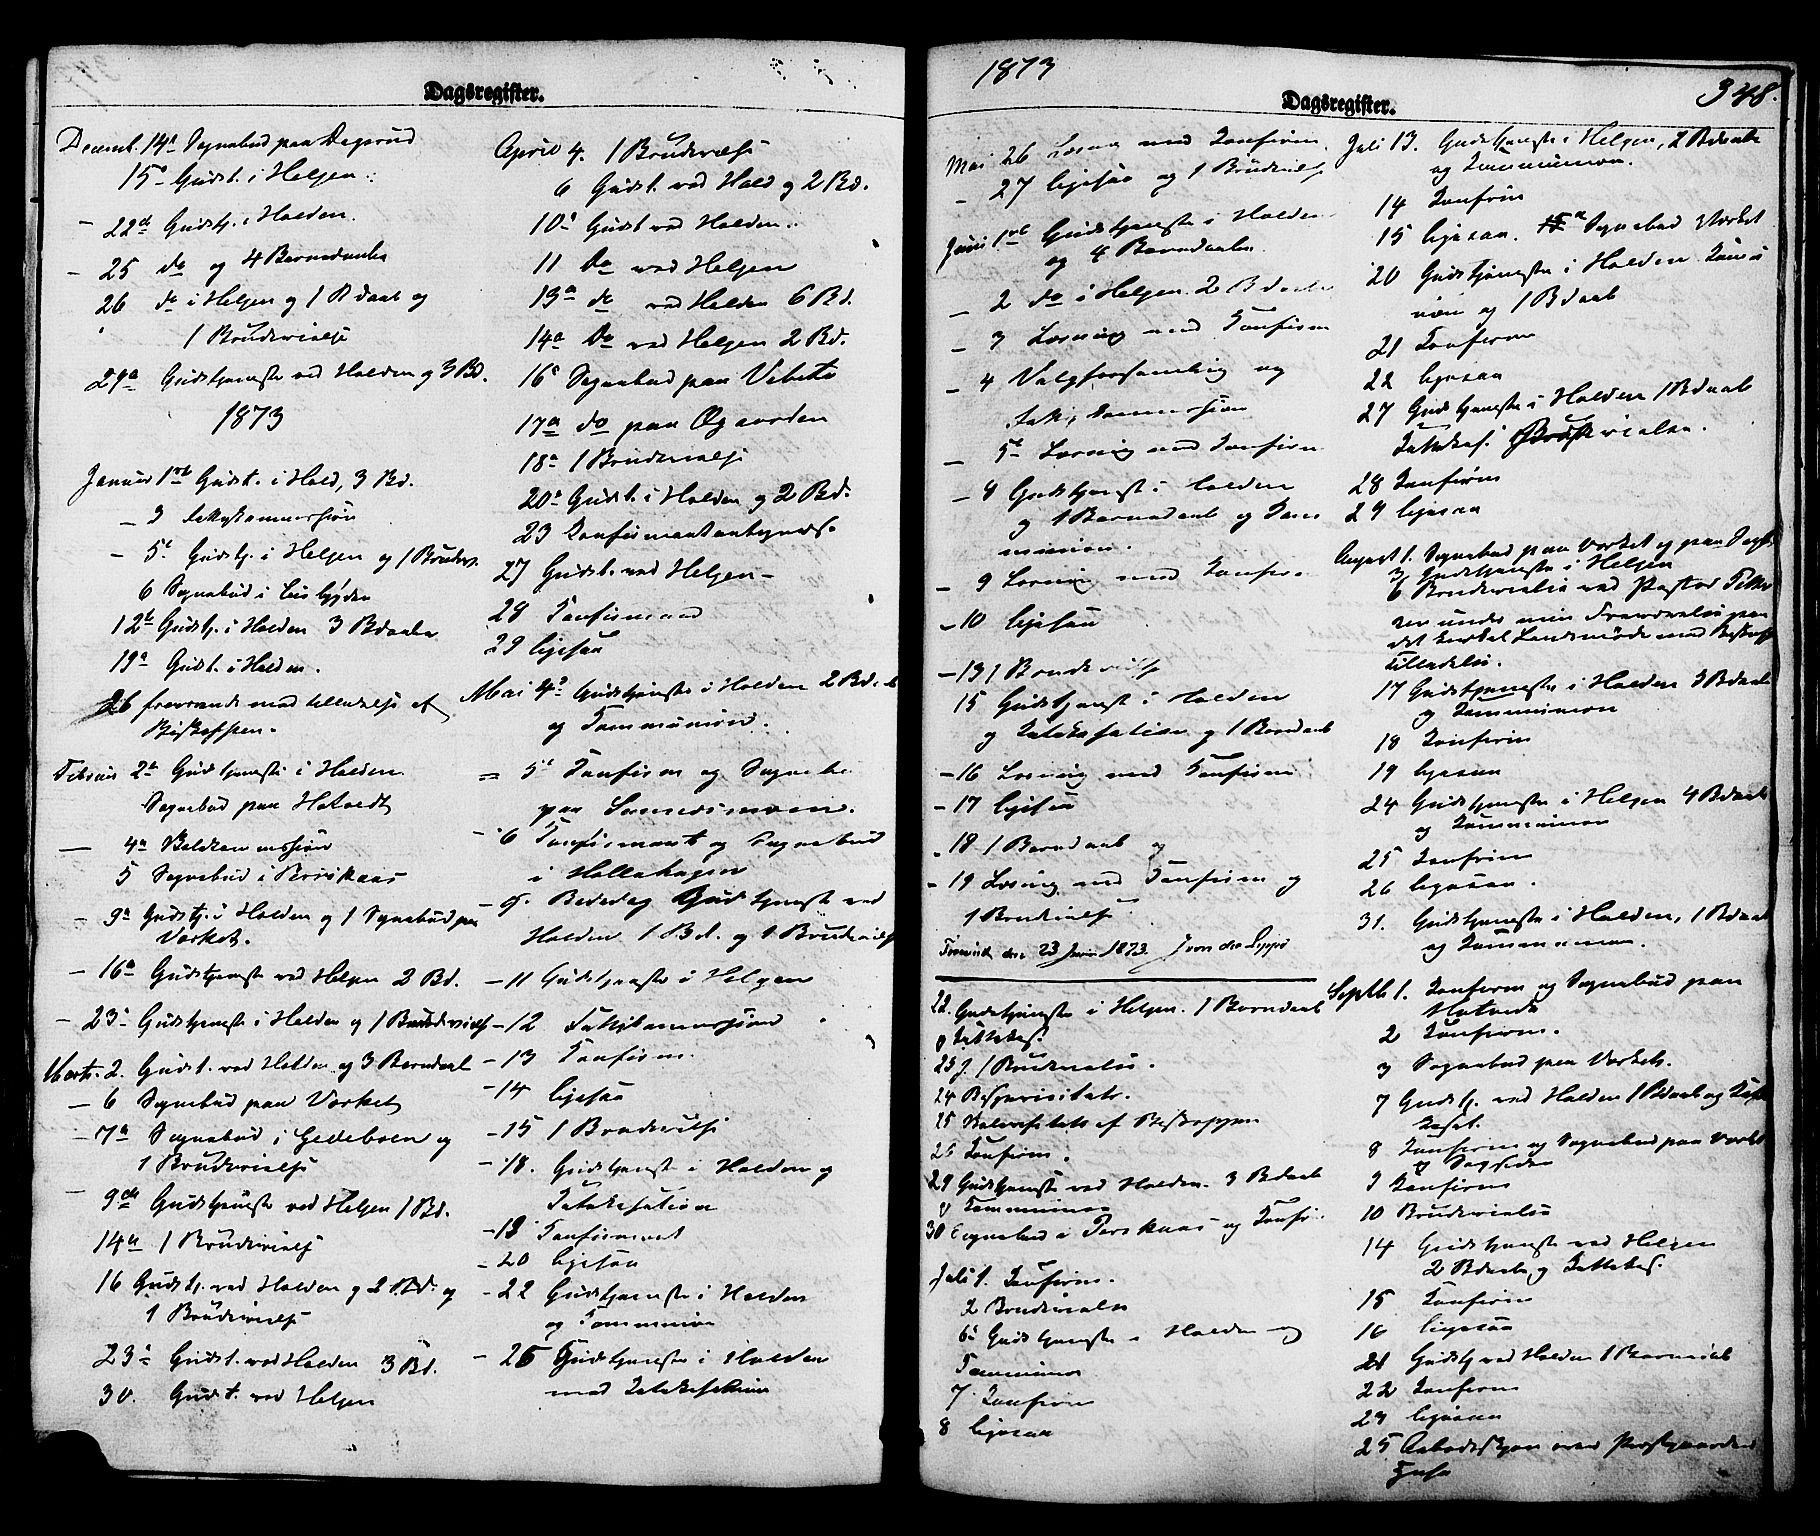 Dagsregister.
Decemb. 14de Sognebud paa
15de Gudst. i Helgen.
— 22de Gudstj. i Holden.
— 25 do og 4 Barnedaabe
26 do i Helgen og 1 Bdaab og
1 Brudevielse
29de Gudstjeneste ved Holden og 3 Bd.
1873
Januar 1ste Gudst. i Hold, 3 Bd.
— 3
— 5te Gudstj. i Helgen og 1 Brudev.
6 Sognebud i
12te Gudstj. i Holden 3 Bdaabe
19de Gudst. i Holden.
26 fraværende med tilladelse af
Biskoppen.
Februar 2den Gudstjeneste i Holden
Sognebud paa Hotvedt
— 4de Valdkommission
5 Sognebud i
— 9de Gudstj. i Holden og 1 Sognebud paa
Værket.
— 16de Gudstjeneste ved Helgen 2 Bd.
— 23de Gudstjeneste i Holden og 1 Brudevielse
Marts. 2. Gudst. ved Holden og 3 Barndaab
— 6 Sognebud paa Værket
— 7de Sognebud i Gedeboen og
1 Brudevielse
— 9de Gudstjeneste ved Helgen 1 Bd.
14de 1 Brudevielse
16 Gudstj. ved Holden og 2 Bd. og
1 Brudevielse
23de Gudst. ved Holden 3 Bd.
30. Gudst. ved Helgen
April 4. 1 Brudevielse
6 Gudst. ved Hold og 2 Bd.
10de Gudst ved Holden.
11 Do ved Helgen
13de do ved Holden 6 Bd.
14de Do ved Helgen 2 Bd.
16de Sognebud paa
17de do paa
18de 1 Brudevielse
20de Gudst. i Holden og 2 Bd.
23
27 Gudst. ved Helgen –
28 Konfirmand
29 ligesaa
Mai 4de Gudstjeneste i Holden 2 Bd.
og Communion.
= 5te Konfirm og Sognebud
paa
— 6 Konfirmant og Sognebud
i Hollahagen
— 9. Bededag Gudstjeneste ved
Holden 1 Bd. og 1 Brudevielse
— 11 Gudstjeneste i Helgen
— 12 Fattigkommission
— 13 Konfirm.
— 14 ligesaa
— 15 1 Brudevielse
— 18. Gudstjeneste i Holden og
Katekisation
— 19 Konfirmant
— 20 ligesaa
— 22 Gudstjeneste i Holden
og Communion
— 25 Gudstjeneste i Holden
med Katekisation
1873
Dagsregister.
348.
Mai 26 Læsning med Konfirm.
— 27 ligesaa og 1 Brudevielse
Juni 1ste Gudstjeneste i Holden
og 4 Barndaabe.
— 2 do i Helgen 2 Bdaabe
— 3 Læsning med Konfirm
— 4 Valgforsamling og
Fatt. Kommission
— 5te Læsning med Konfirm
— 8 Gudstjeneste i Holden
og 1 Barnedaab og Com
munion.
— 9 Læsning med Konfir.
— 10 ligesaa
— 13 1 Brudevielse
15 Gudstjeneste i Holden
og Katekisation og 1 Barndaab
— 16 Læsning med Konfirm.
— 17 ligesaa
— 18 1 Barndaab og
— 19 Læsning med Konfirm og
1 Brudevielse.
den 23 Juni 1873.
22. Gudstjeneste i Helgen. 1 Barndaab
og Katekes.
23 f. 1 Brudevielse.
24 Bispevisitats.
25 Skolevisitats af Biskoppen
26 Konfirm.
29 Gudstjeneste ved Holden. 3 Bdaab
og Kommunion
30 Sognebud i og Konfir.
Juli 1. Konfirm.
2 Brudevielse
6te Gudstjeneste i Holden og
Communion
7 Konfirm
8 ligesaa
Juli 13. Gudstjeneste i Helgen, 2 Bdaabe
og Kommunion.
14 Konfirm
15 ligesaa. Sognebud Værket
20 Gudstjeneste i Holden Komu
nion og 1 Bdaab
21 Konfirm
22 ligesaa
27 Gudstjeneste i Holden 1 Bdaab
Katekes. Brudevielse.
28 Konfirm
29 ligesaa
August 1. Sognebud paa Værket og paa
3 Gudstjeneste i Helgen
6 Brudevielse ved Pastor
under min Fraværelse paa
det Landsmøde med Biskops
Tilladelse.
17 Gudstjeneste i Holden 3 Bdaab
og Kommunion
18 Konfirm
19 ligesaa
24 Gudstjeneste i Helgen 4 Bdaab
og Kommunion
25 Konfirm
26 ligesaa.
31. Gudstjeneste i Holden, 1 Bdaab
og Kommunion.
Septb 1. Konfirm og Sognebud paa
Hotvedt
2 Konfirm.
3 Sognebud paa Værket.
7 Gudstj. ved Holden 1 Bdaab og Kate
keset.
8 Konfirm og Sognebud paa Værket
og
9 Konfirm
10 Brudevielse
14 Gudstjeneste ved Helgen
2 Bdaab og Katekes.
15 Konfirm
16 ligesaa
21 Gudstj ved Holden 1 Barnedaab
22 Konfirm
23 ligesaa
25 over Præstgaardens